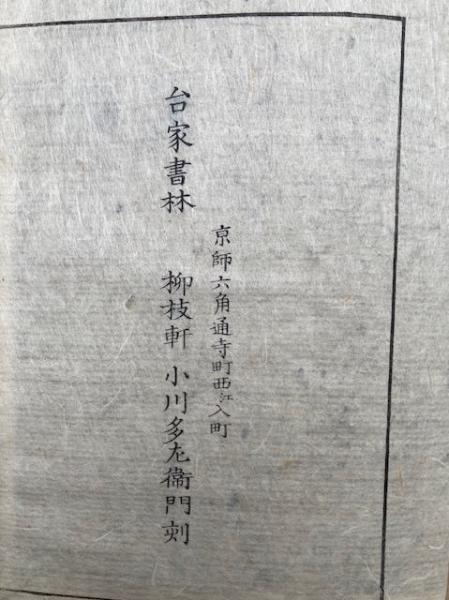 京師六角通寺町西江入町
台家書林 柳枝軒 小川多左衛門刻